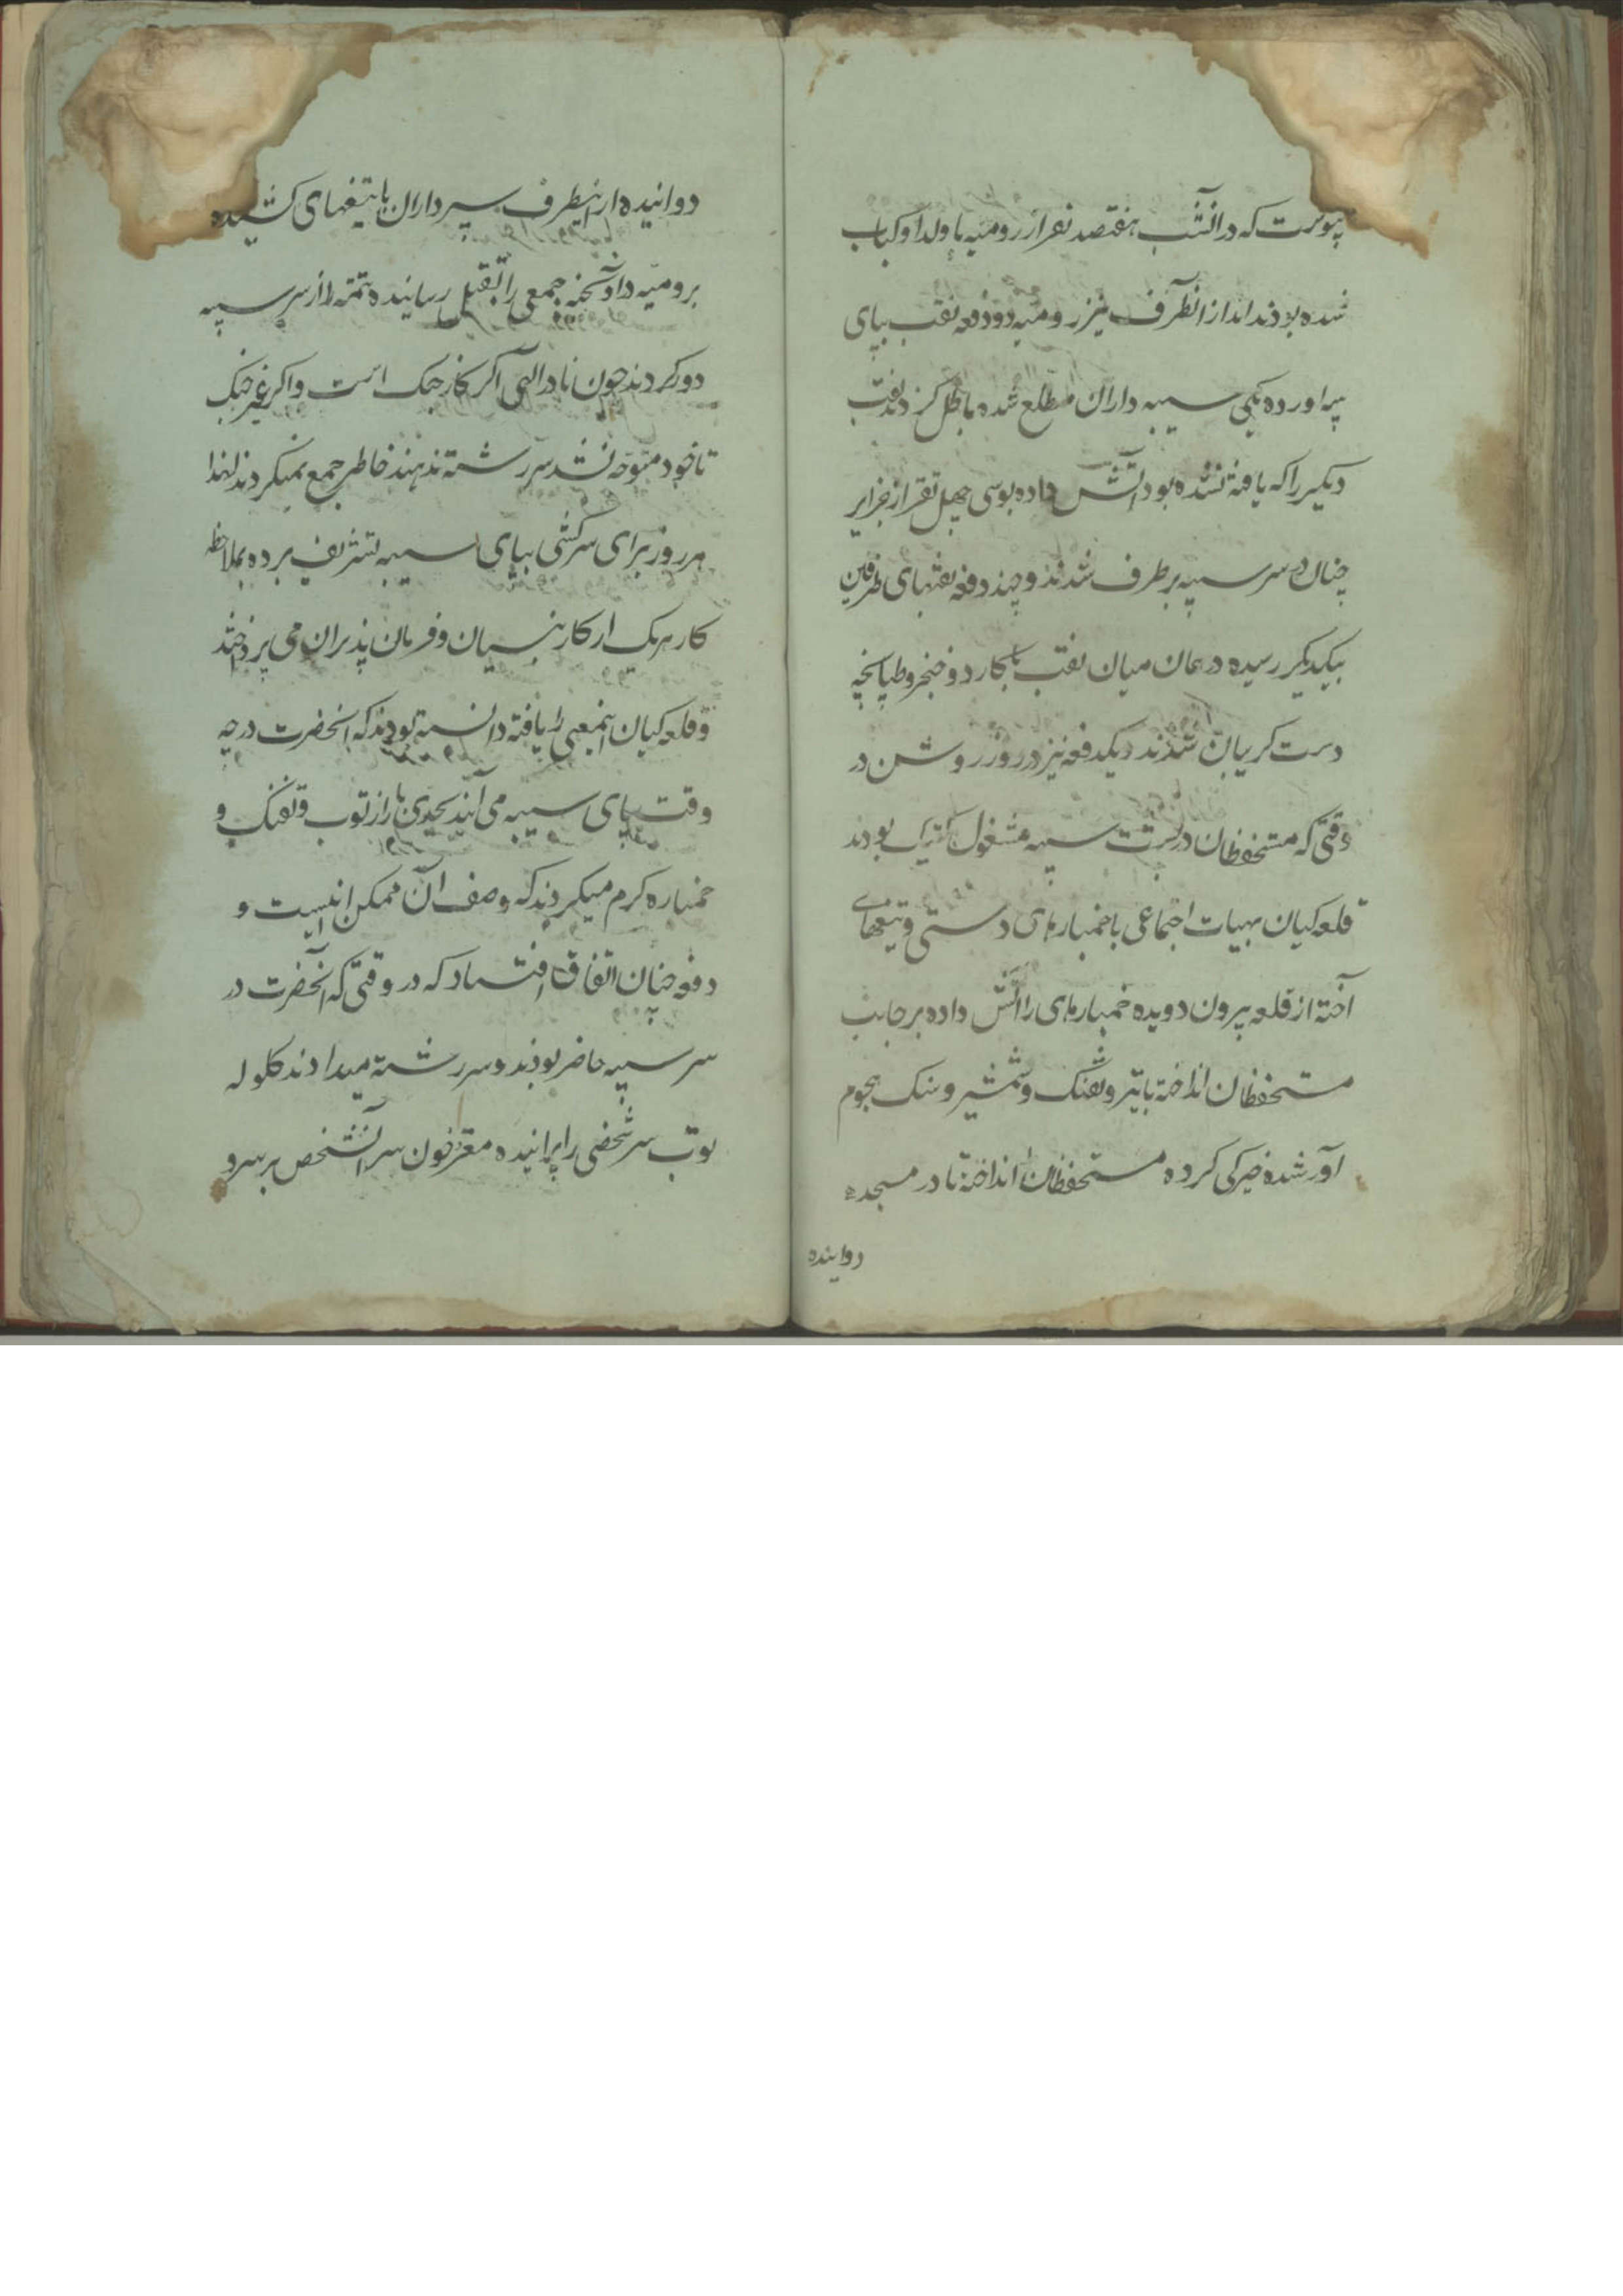 پیوست که در انشب هفتصد نفر از رومیه با ولد او کباب
شده بودند اما از انطرف نیز رومیه دو دفعه نقب بپای
سیبه اورده یکی سیبه داران مطلع شده باطل کردند نقب
دیگیر را که یافته نشده بود اتش داده بوسی چهل نفر از جزایر
چیان در سر سیبه برطرف شدند و چند دفعه نقبهای طرفین
بیکدیگر رسیده در همان میان نقب با کارد و خنجر و طپانچه
دست کریبان شدند دیکدفعه نیز در روز روشن در
وقتی که مستحفظان در پشت سیبه مشغول بودند
قلعه کیان بهیات اجتماعی با خمپاره‌های دستی و تیغهای
آخته از قلعه بیرون دویده خمپاره‌های را اتش داده بر جانب
مستحفظان انداخته با تیر و تفنک و شمشیر و سنک هجوم
آور شده خیرکی کرده مستحفظان انداخته تا در مسجد
دوانیده
دوانیده از اینطرف سیبه داران با تیغهای کشیده
برومیه در آویخته جمعی را بقتل رسانیده تتمه را از سر سیبه
دور کردند چون نادر الهی اکر کار جنک است و اکر غیر جنک
تا خود متوجه نشد سر رشته ندهند خاطر جمع نمیکردند لهذا
هر روز برای سرکشی بپای سیبه تشریف برده بملاحظه
کار هریک از کارنبسیان و فرمان پذیران می پرداختند
و قلعه کیان اینمعنی را یافته دانسته بودند که انحضرت در چه
وقت بپای سیبه می آیند بحدی بازار توپ و تفنک و
خمپاره کرم میکردند که وصف آن ممکن نیست و
دفعه چنان اتفاق افتاد که در وقتی که آنحضرت در
سر سیبه حاضر بودند و سر رشته میدادند کلوله
توپ سر شخصی را پرانیده مغز و خون سر آنشخص بر سر و